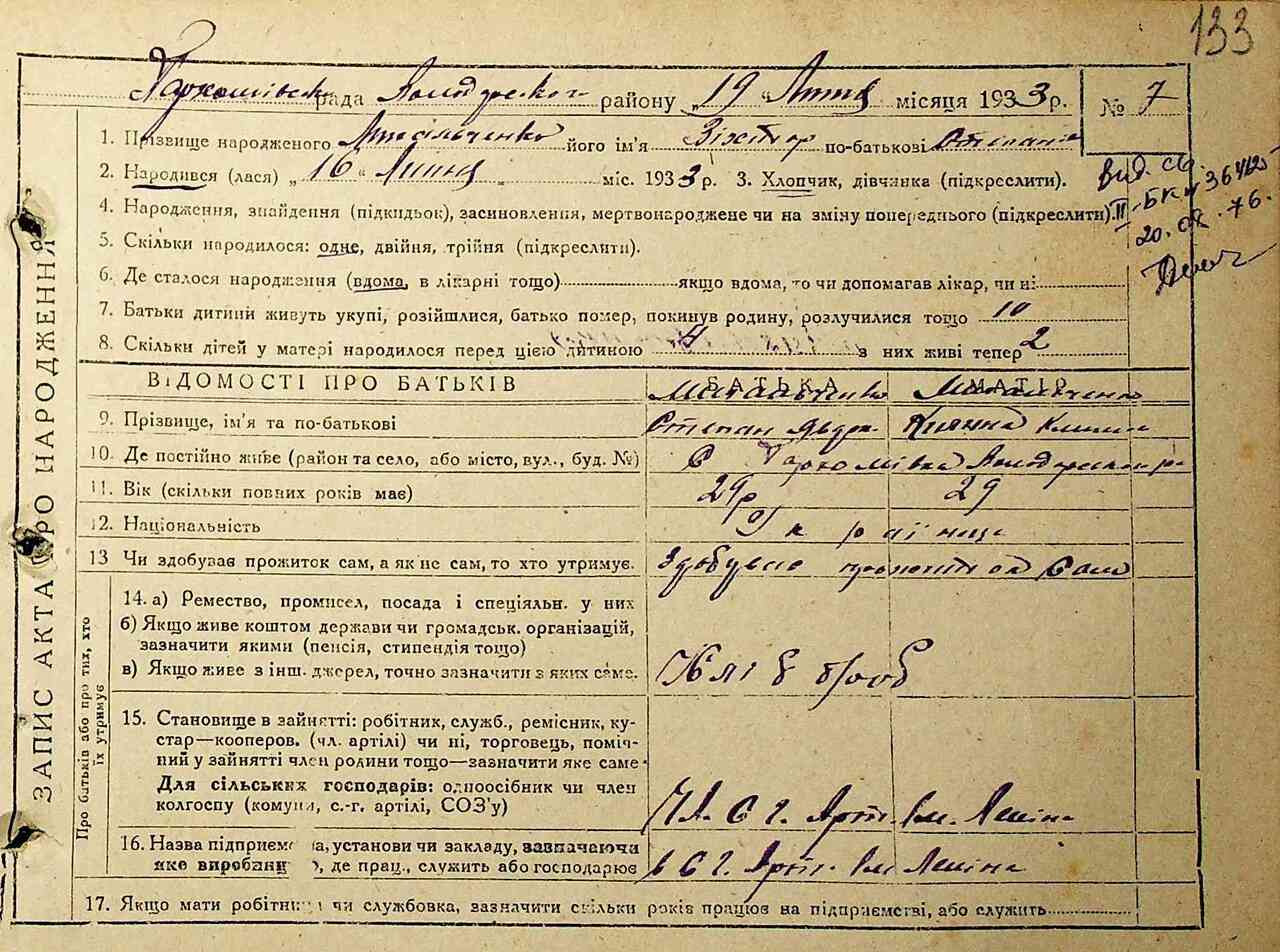 133
рада Володарського району „19“ Липня місяця 1933 р. № 7
1. Прізвище народженого його ім'я Віктор по-батькові Степанів
2. Народився (лася) „16“ Липня міс. 1933 р. 3. Хлопчик, дівчинка (підкреслити).
вид. св.
II-БК № 36412
20. 76.
4. Народження, знайдення (підкидьок), засиновлення, мертвонароджене чи на зміну попереднього (підкреслити).
5. Скільки народилося: одне, двійня, трійня (підкреслити).
6. Де сталося народження (вдома, в лікарні тощо) якщо вдома, то чи допомагав лікар, чи ні
7. Батьки дитини живуть укупі, розійшлися, батько помер, покинув родину, розлучилися тощо
8. Скільки дітей у матері народилося перед цією дитиною 4 з них живі тепер 2
ВІДОМОСТІ ПРО БАТЬКІВ БАТЬКА МАТІР
9. Прізвище, ім'я та по-батькові Степан
10. Де постійно живе (район та село, або місто, вул., буд. №) С
11. Вік (скільки повних років має) 29р 29
12. Національність Українці
13 Чи здобуває прожиток сам, а як не сам, то хто утримує. Здобуває сам
14. а) Ремество, промисел, посада і спеціяльн. у них
б) Якщо живе коштом держави чи громадськ. організацій,
зазначити якими (пенсія, стипендія тощо)
в) Якщо живе з інш. джерел, точно зазначити з яких саме. Хліборобб
15. Становище в зайнятті: робітник, служб., ремісник, ку-
стар—кооперов. (чл. артілі) чи ні, торговець, поміч-
ний у зайнятті член родини тощо—зазначити яке саме
Для сільських господарів: одноосібник чи член
колгоспу (комуни, с.-г. артілі, СОЗ'у) Чл. С г. Арт. ім. Леніна
16. Назва підприємс а, установи чи закладу, зазначаючи
яке виробни , де прац., служить або господарює в С г. Арт. ім Леніна
17. Якщо мати робітни чи службовка, зазначити скільки років працює на підприємстві, або служить
ЗАПИС АКТА ПРО НАРОДЖЕННЯ
Про батьків або про тих, хто
їх утримує